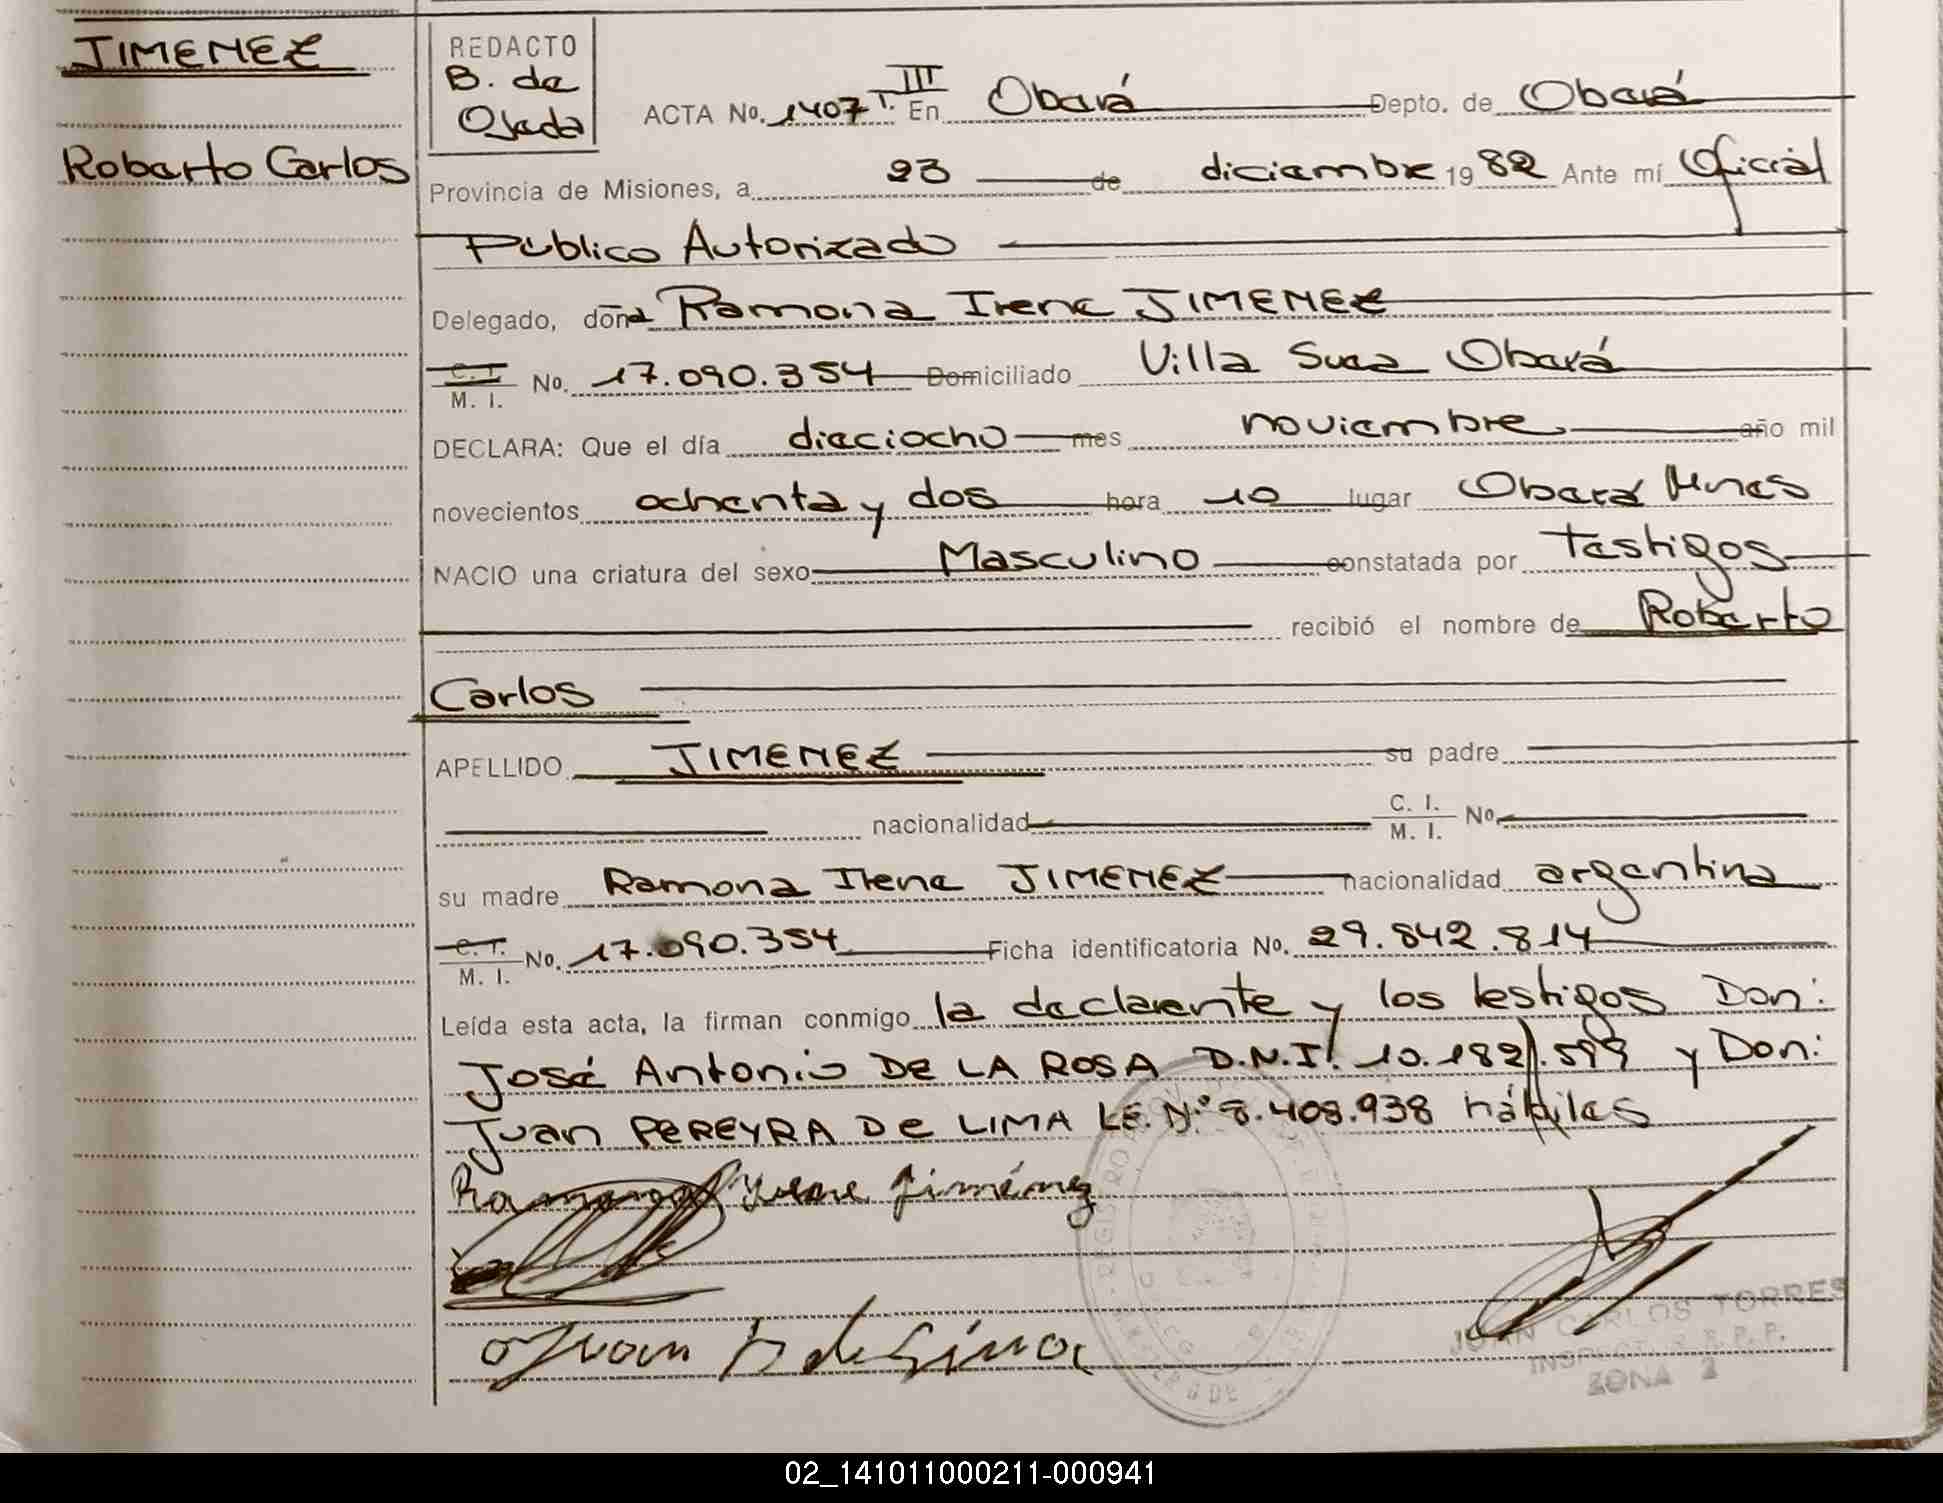 JIMENEZ
Roberto Carlos
REDACTO
B. de
Ojeda
ACTA No. 1407 T. III En Oberá Depto. de Oberá
Provincia de Misiones, a 23 de diciembre 1982 Ante mí Oficial
Público Autorizado
Delegado, doña Ramona Irene JIMENEZ
C. I.
M. I. No. 17.090.354 Domiciliado Villa Svea Oberá
DECLARA: Que el día dieciocho mes noviembre año mil
novecientos ochenta y dos hora 10 lugar Oberá Mnes
NACIO una criatura del sexo Masculino constatada por testigos
recibió el nombre de Roberto
Carlos
APELLIDO JIMENEZ su padre
nacionalidad C. I.
M. I. No.
su madre Ramona Irene JIMENEZ nacionalidad argentina
C. I.
M. I. No. 17.090.354 Ficha identificatoria No. 29.842.814
Leída esta acta, la firman conmigo la declarente y los testigos Don:
José Antonio DE LA ROSA D.N.I. 10.182.599 y Don:
Juan PEREYRA DE LIMA LE. Nº 8.408.938 hábiles
Ramona Yrene Jiménez
Juan P de Lima
JUAN CARLOS TORRES
ZONA 2
02_141011000211-000941